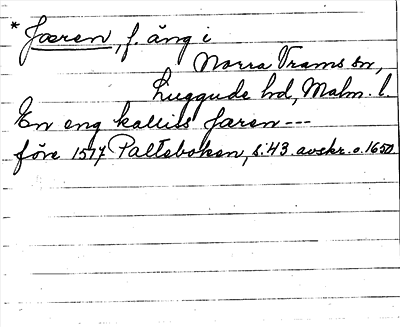 * Jæren, f. äng i
Norra Vrams sn,
Luggude hd, Malm. l.
En eng kalliss Jæren ---
före 1577 Palteboken, s. 43 avskr. o. 1650.